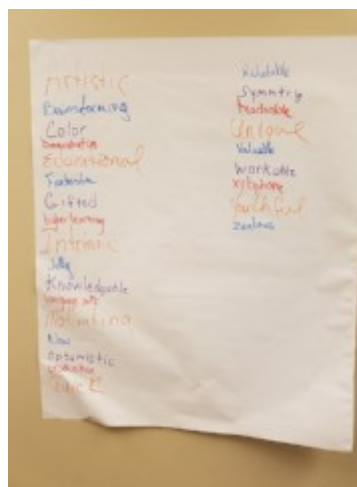 Artistic
Brainstorming
Color
Educational
Fantastic
Gifted
higher learning
Intrinsic
Jolly
Knowledgable
language arts
Motivating
New
optomistic
Quick
Relatable
Symmetry
teachable
Unique
Valuable
workable
xylophone
Youthful
zealous